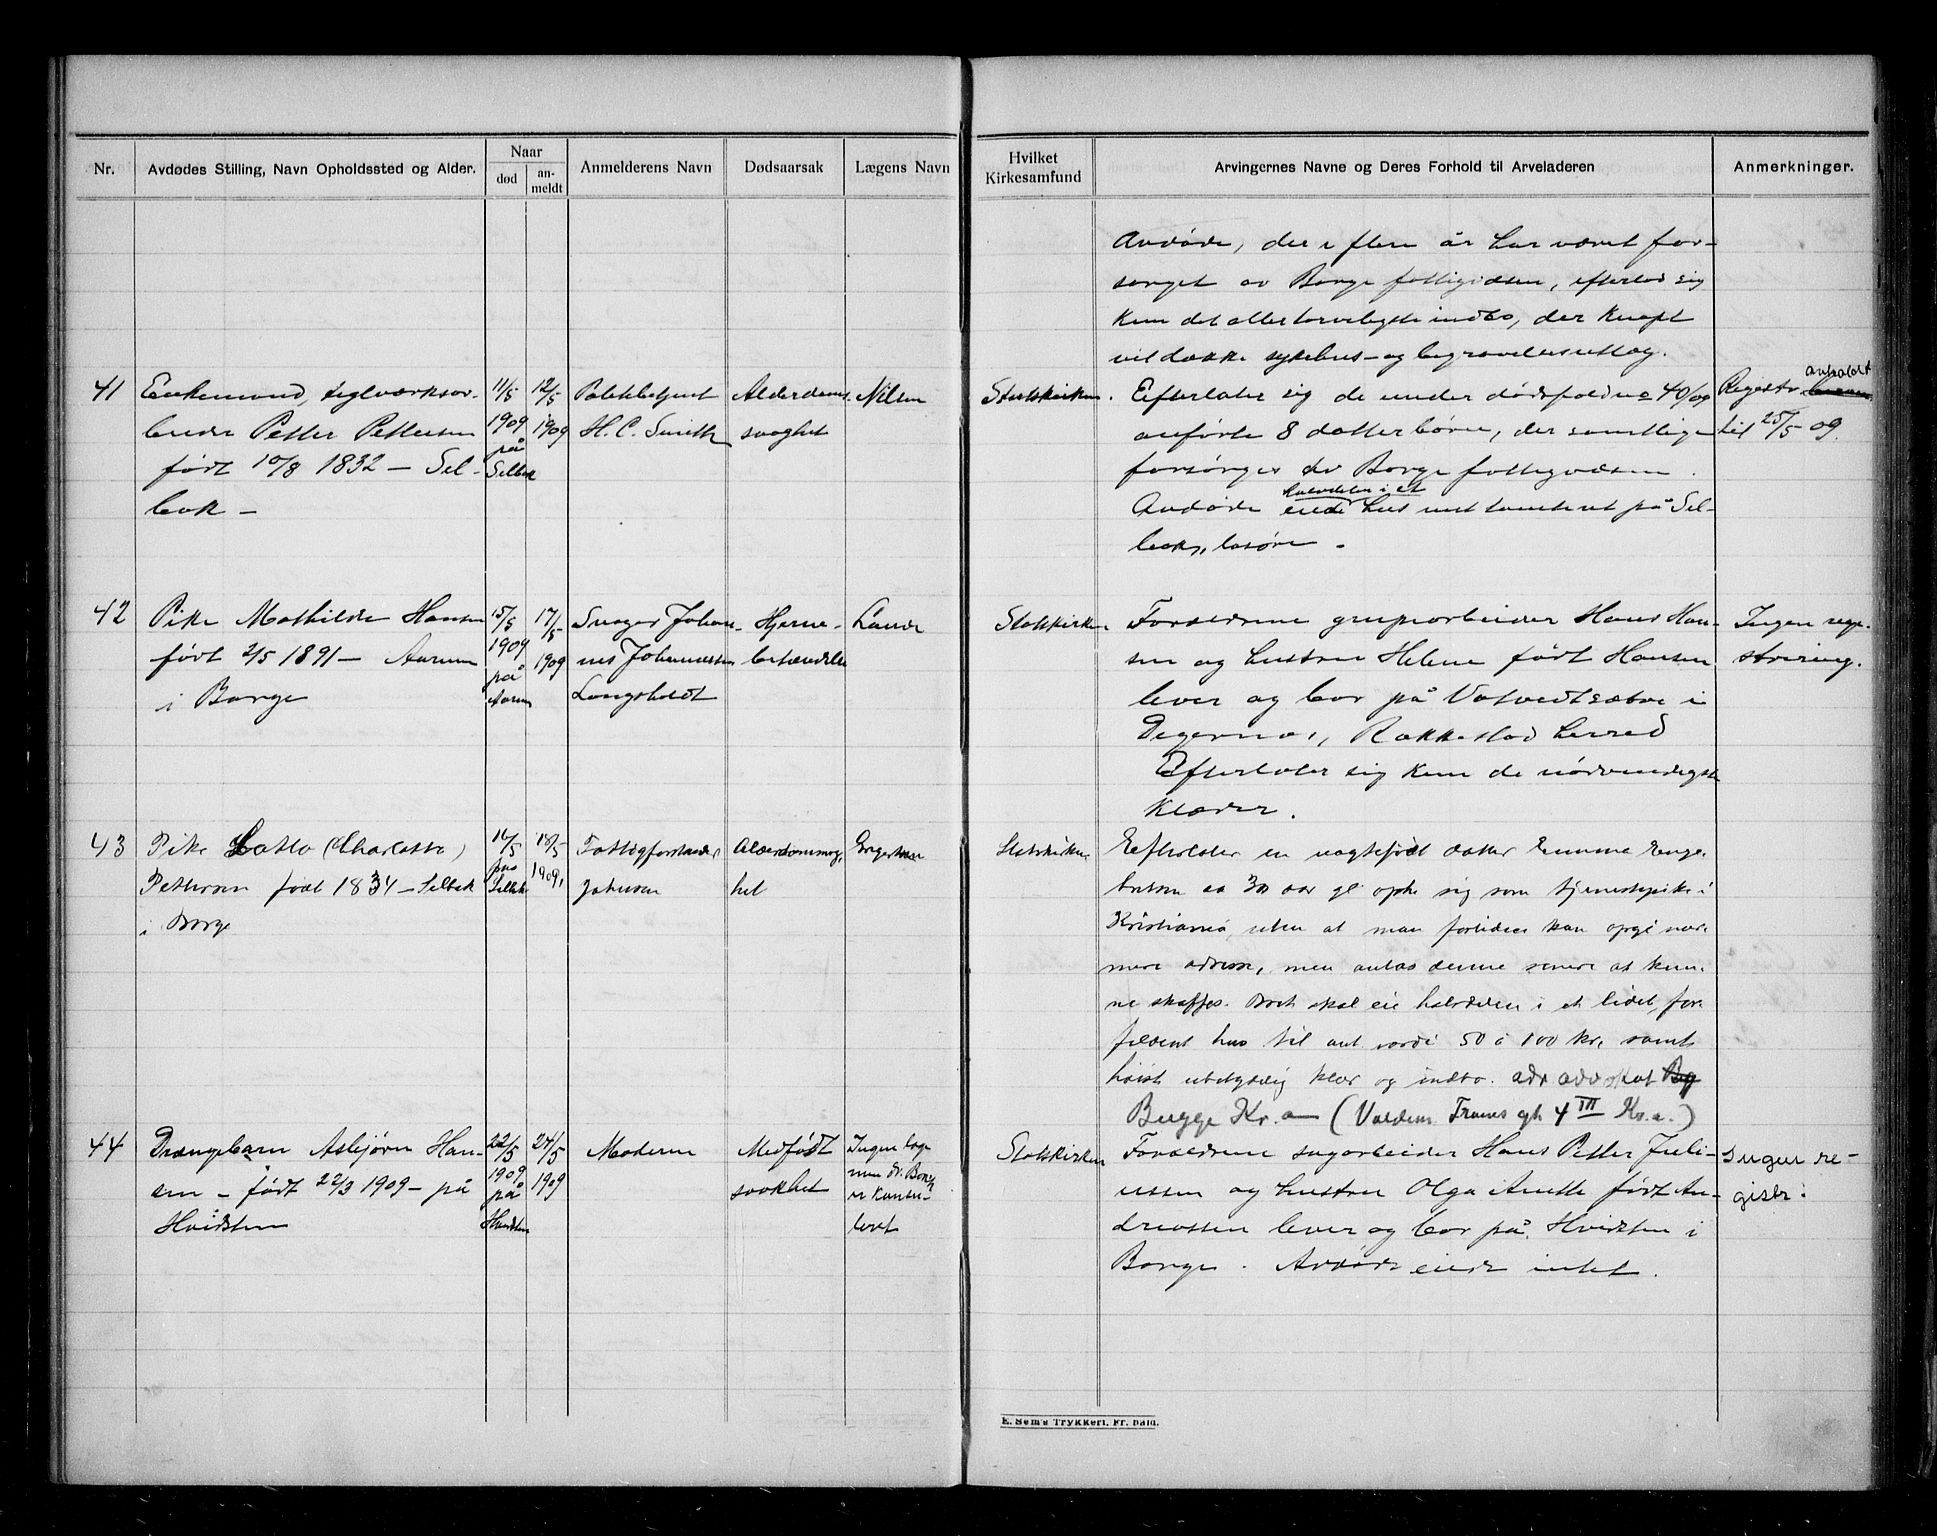 Nr.
Avdødes Stilling, Navn Opholdssted og Alder.
Naar
død
an-
meldt
Anmelderens Navn
Dødsaarsak
Lægens Navn
Hvilket
Kirkesamfund
Arvingernes Navne og Deres Forhold til Arveladeren
Anmerkninger.
Avdøde, der i flere år har været for-
sørget av Borge fattigvæsen, efterlod sig
kun det allertarveligste indbo, der knapt
vil dække sykehus- og begravelsesutlæg.
41
Enkemand, teglværksar-
beider Petter Pettersen
født 10/8 1832 – Sel-
bak –
11/5
1909
på
Selbak
12/5
1909
Politibetjent
H. C. Smith
Alderdoms-
svaghet
Nilsen
Statskirken.
Efterlater sig de under dødsfald no 40/09
anførte 8 datterbørn, der samtlige
forsørges av Borge fattigvæsen.
Avdøde eiede halvdelen i et hus uten tomteret på Sel-
bak, løsøre –
Registr. avholdt
til 25/5 09.
42
Pike Mathilde Hansen
født 2/5 1891 – Aarum
i Borge
15/5
1909
på
Aarum
17/5
1909
Svoger Johan-
nes Johannessen
Langsholdt
Hjerne-
betændelse
Lande
Statskirken
Forældrene grupearbeider Hans Han-
sen og hustru Helene født Hansen
lever og bor på Vatvedtsæbre i
Degernes, Rakkestad herred
Efterlater sig kun de nødvendigste
klæder.
Ingen regi-
strering.
43
Pike Lotte (Charlotte)
Pettersen født 1834 – Selbak
i Borge
16/5
paa
Selbak
18/5
1909,
Fattigforstander
Johnsen
Alderdomssvag-
het
Engestrøm
Statskirken
Efterlater en uegtefødt datter Emma Enge-
bretsen ca 30 aar gl opholder sig som tjenestepike i
Kristiania, uten at man fortiden kan opgi nær-
mere adresse, men antas denne senere at kun-
ne skaffes. Boet skal eie halvdelen i et lidet, for-
faldent hus til ant. værdi 50 à 100 kr. samt
høist ubetydelig klær og indbo. adr advokat
Bugge Kr.a – (Valdem. Tranes gt 4 III Kr.a.)
44
Drængebarn Asbjørn Han-
sen – født 22/3 1909 – på
Hvidsten
22/5
1909
på
Hvidsten
24/5
1909
Moderen
Medfødt
svakhet
Ingen læge
men dr. Bonge
er konsu-
leret
Statskirken
Forældrene sagarbeider Hans Petter Juli-
ussen og hustru Olga Anette født An-
dreassen lever og bor på Hvidsten i
Borge. Avdøde eiede intet.
Ingen re-
gistr.
E. Sem's Trykkeri, Fr. hald.